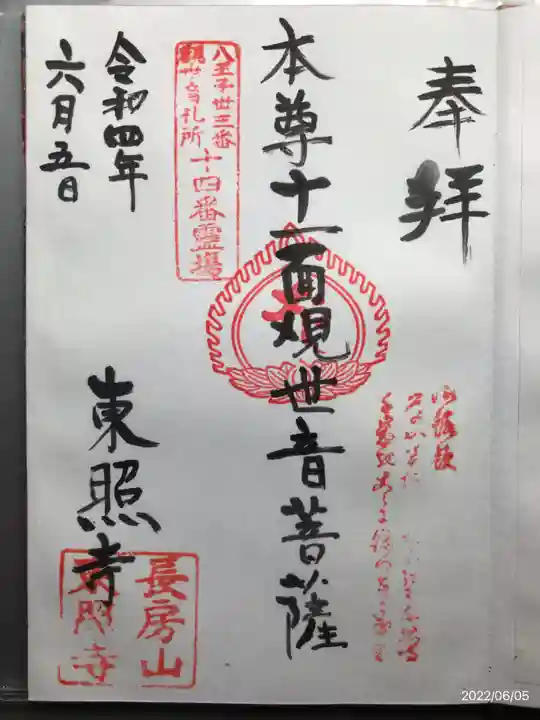 奉拝
本尊十一面観世音菩薩
八王子卅三番
観世音札所
十四番霊場
御詠歌
令和四年
六月五日
東照寺
長房山
東照寺
2022/06/05